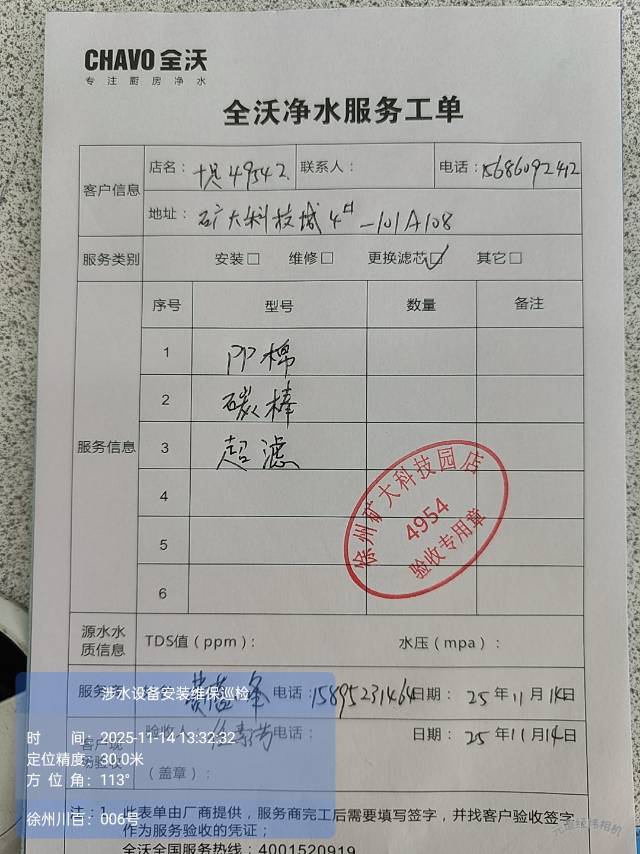 CHAVO 全沃
专注厨房净水
全沃净水服务工单
客户信息
店名： 49542 联系人： 电话：15686092412
地址：矿大科技城4号-101A108
服务类别 安装□ 维修□ 更换滤芯□✓ 其它□
服务信息
序号 型号 数量 备注
1 PP棉
2 碳棒
3 超滤
4
5
6
徐州矿大科技园店
4954
验收专用章
源水水质信息 TDS值（ppm）： 水压（mpa）：
服务商 电话：15895231464 日期：25年11月14日
验收人 电话： 日期：25年11月14日
（盖章）：
涉水设备安装维保巡检
时 间：2025-11-14 13:32:32
定位精度：30.0米
方 位 角：113°
徐州川百：006号
注：1、此表单由厂商提供，服务商完工后需要填写签字，并找客户验收签字
作为服务验收的凭证；
全沃全国服务热线：4001520919
元道经纬相机